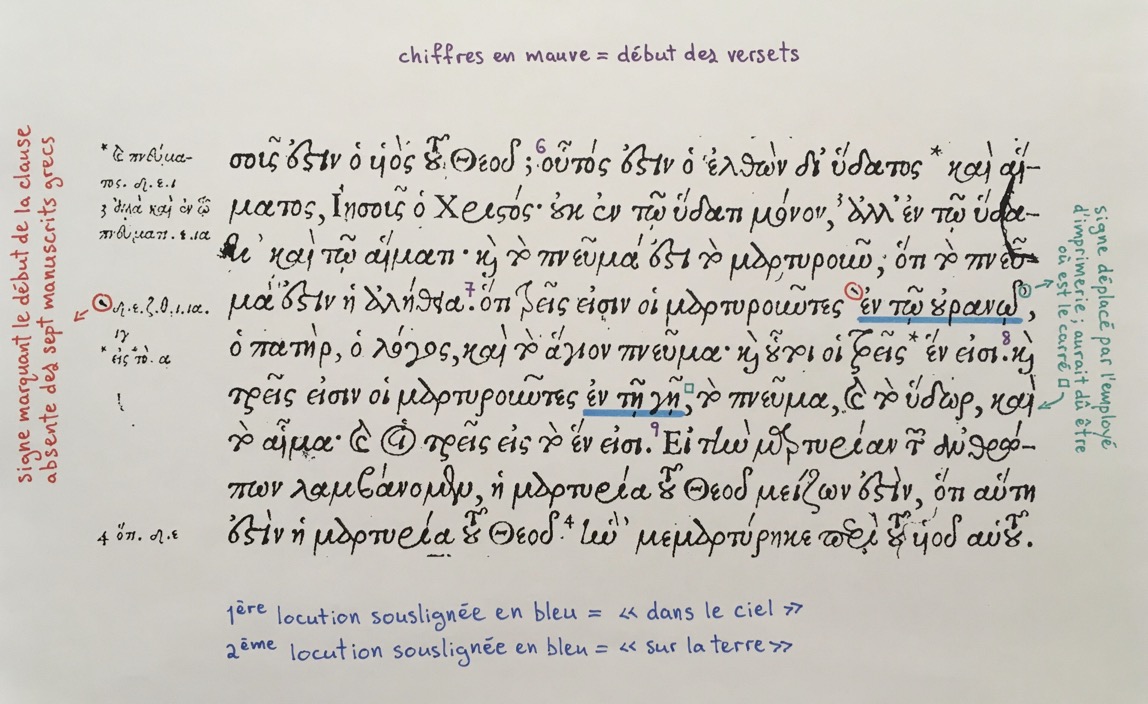 chiffres en mauve = début des versets
Signe marquant le début de la clause
absente des sept manuscrits grecs
* καὶ πνεύμα-
τος. δ.ε.ι
3 ἀλλὰ καὶ ἐν τῷ
πνεύματι. ε.ια
δ.ε.ζ.θ.ι.ια.
ιγ
* εἰς τὸ. α
4 ὅτι. δ.ε
σοῦς ἐστιν ὁ υἱὸς τοῦ Θεοῦ ; 6 οὗτός ἐστιν ὁ ἐλθὼν δι' ὕδατος * καὶ αἵ-
ματος, Ἰησοῦς ὁ Χριστός· οὐκ ἐν τῷ ὕδατι μόνον, 3 ἀλλ' ἐν τῷ ὕδα-
τι καὶ τῷ αἵματι· καὶ τὸ πνεῦμά ἐστι τὸ μαρτυροῦν, ὅτι τὸ πνεῦ-
μά ἐστιν ἡ ἀλήθεια. 7 ὅτι τρεῖς εἰσιν οἱ μαρτυροῦντες ἐν τῷ οὐρανῷ,
ὁ πατὴρ, ὁ λόγος, καὶ τὸ ἅγιον πνεῦμα· καὶ οὗτοι οἱ τρεῖς * ἕν εἰσι. 8 καὶ
τρεῖς εἰσιν οἱ μαρτυροῦντες ἐν τῇ γῇ, τὸ πνεῦμα, καὶ τὸ ὕδωρ, καὶ
τὸ αἷμα· καὶ οἱ τρεῖς εἰς τὸ ἕν εἰσι. 9 Εἰ τὴν μαρτυρίαν τῶν ἀνθρώ-
πων λαμβάνομεν, ἡ μαρτυρία τοῦ Θεοῦ μείζων ἐστίν, ὅτι αὕτη
ἐστὶν ἡ μαρτυρία τοῦ Θεοῦ 4 ἣν μεμαρτύρηκε περὶ τοῦ υἱοῦ αὐτοῦ.
Signe déplacé par l'employé
d'imprimerie ; aurait dû être
où est le carré □
1ère locution souslignée en bleu = << dans le ciel >>
2ème locution souslignée en bleu = << sur la terre >>